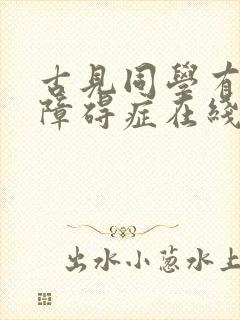 古見同學有
障碍症在綫
出水小葱水上